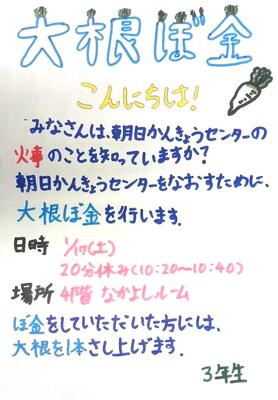 大根ぼ金
こんにちは!
みなさんは、朝日かんきょうセンターの
火事のことを知っていますか?
朝日かんきょうセンターをなおすために、
大根ぼ金を行います。
日時 1/17(土)
20分休み(10:20~10:40)
場所 4階 なかよしルーム
ぼ金をしていただいた方には、
大根を1本さし上げます。
3年生